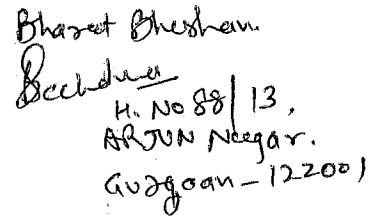 Bharat Bhushan.
H. No 88/13,
ARJUN Nagar.
Gurgoan - 122001